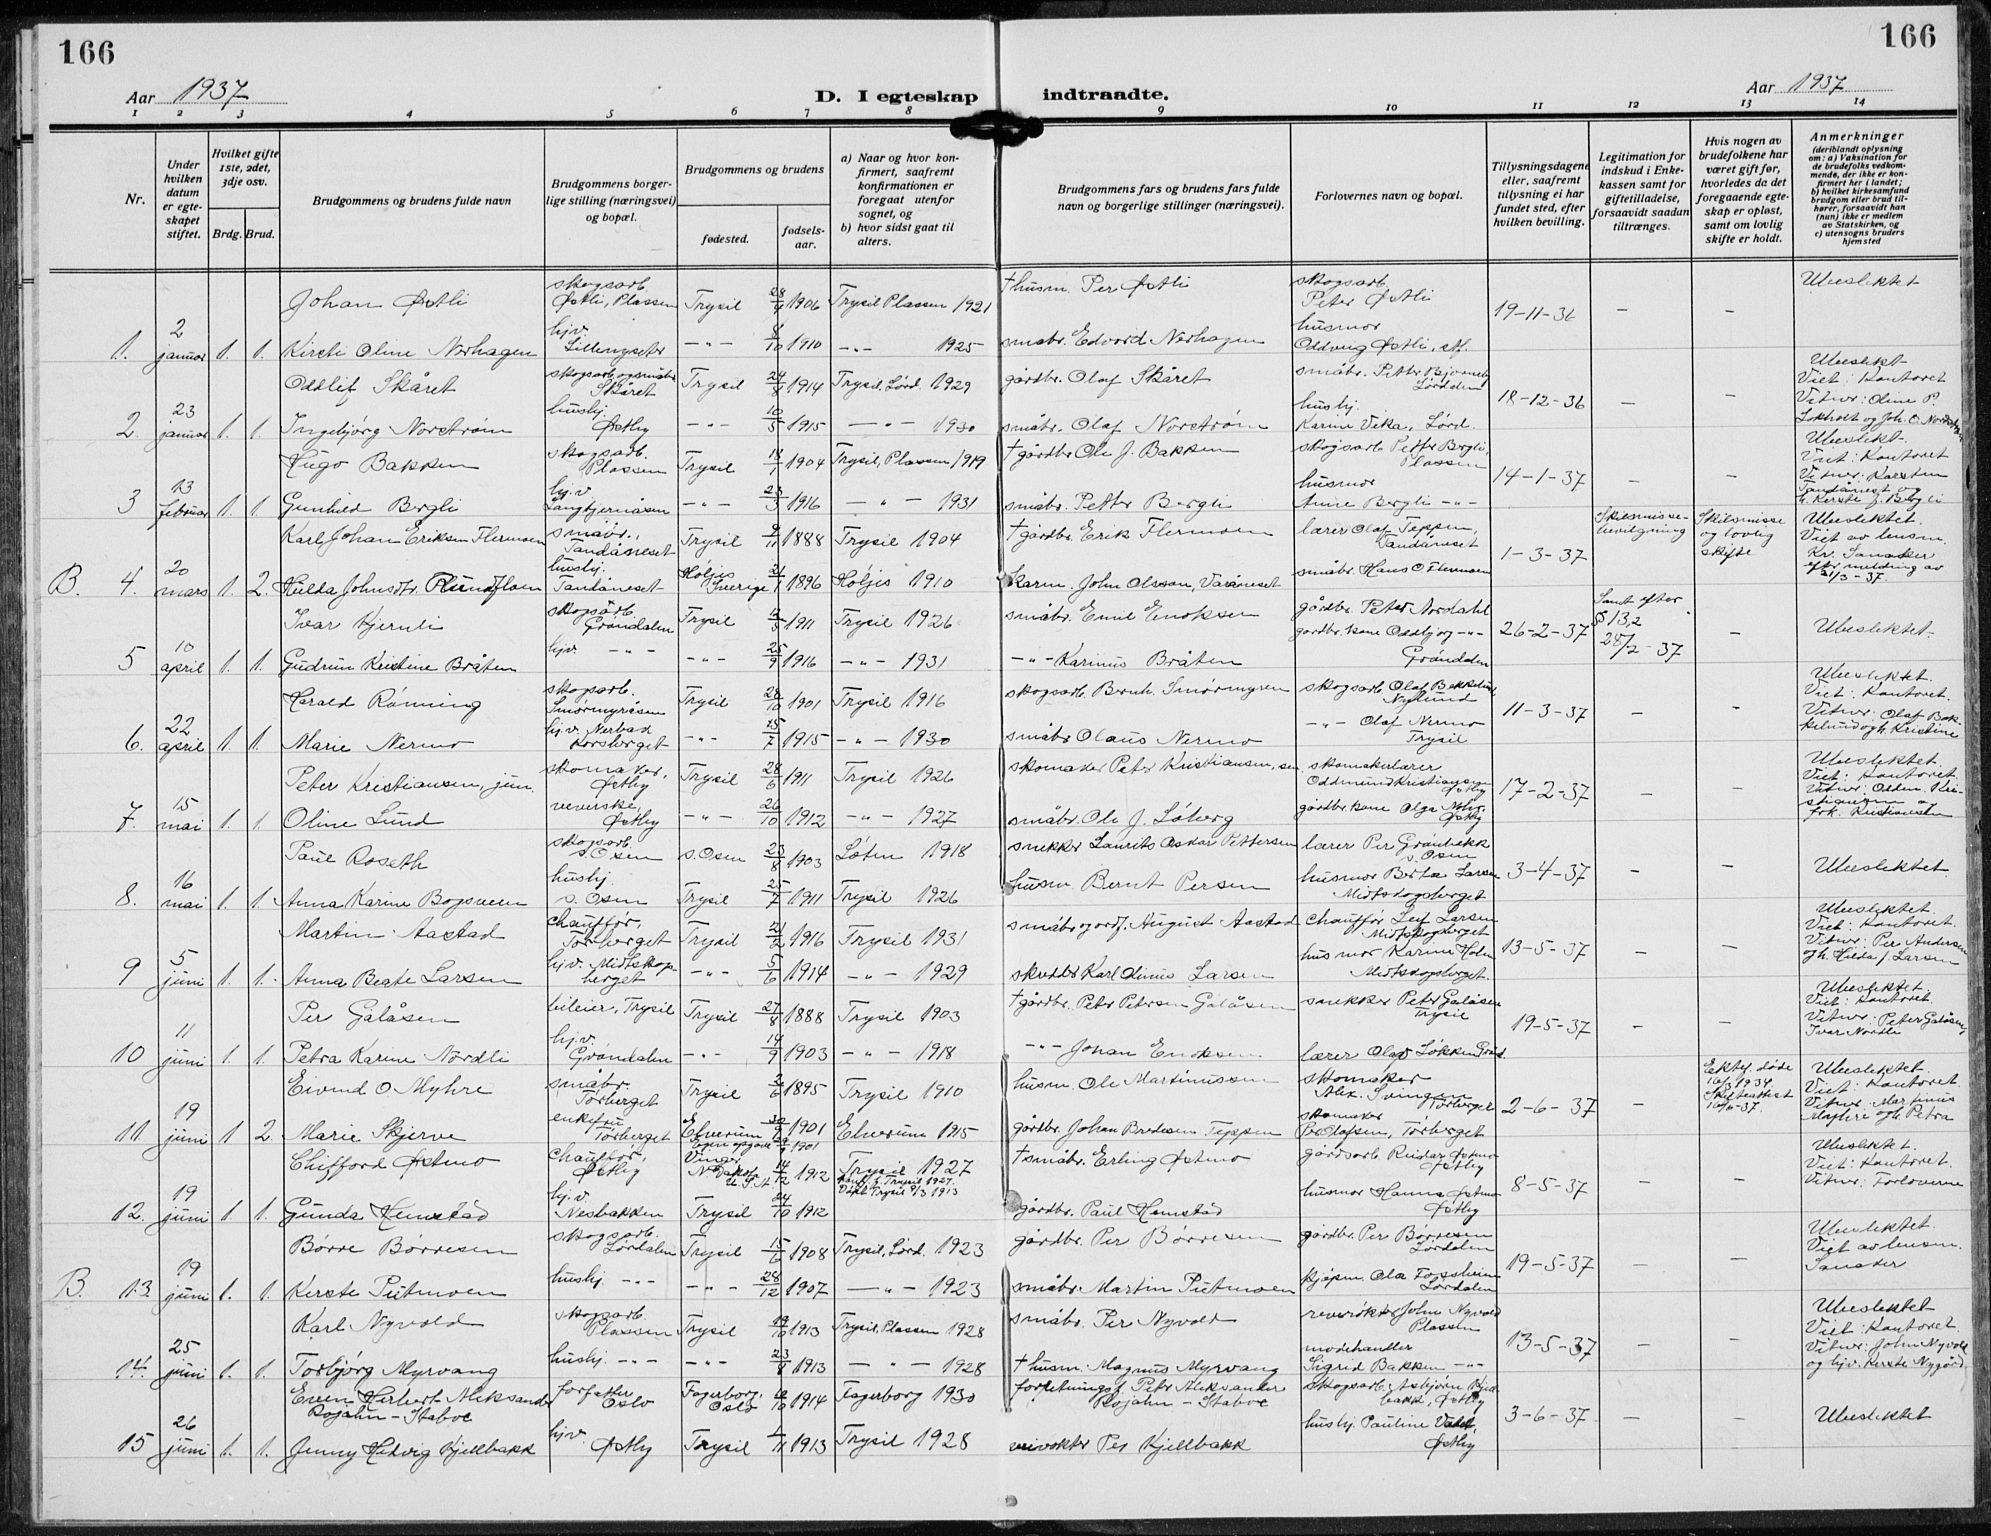 166
166
Aar 1937
D. I egteskap indtraadte.
Aar 1937
1 2 3 4 5 6 7 8 9 10 11 12 13 14
Nr.
Under hvilken datum er egteskapet stiftet.
Hvilket gifte 1ste, 2det, 3dje osv.
Brdg. Brud.
Brudgommens og brudens fulde navn
Brudgommens borgerlige stilling (næringsvei) og bopæl.
Brudgommens og brudens
fødested.
fødselsaar.
a) Naar og hvor konfirmert, saafremt konfirmationen er foregaat utenfor sognet, og
b) hvor sidst gaat til alters.
Brudgommens fars og brudens fars fulde navn og borgerlige stillinger (næringsvei).
Forlovernes navn og bopæl.
Tillysningsdagene eller, saafremt tillysning ei har fundet sted, efter hvilken bevilling.
Legitimation for indskud i Enkekassen samt for giftetilladelse, forsaavidt saadan tiltrænges.
Hvis nogen av brudefolkene har været gift før, hvorledes da det foregaaende egteskap er opløst, samt om lovlig skifte er holdt.
Anmerkninger (deriblandt oplysning om: a) Vaksination for de brudefolks vedkommende, der ikke er konfirmert her i landet; b) hvilket kirkesamfund brudgom eller brud tilhører, forsaavidt han (hun) ikke er medlem av Statskirken, og c) utensogns bruders hjemsted
Johan Østli skogsarb. Østli, Plassen Trysil 28/4 1906 Trysil Plassen 1921 † husm. Per Østli skogsarb. Peter Østli 19-11-36 – – Ubeslektet
1. 2 januar 1. 1. Kirsti Oline Nerhagen hjv. Lillengseter –"– 8/10 1910 –"– 1925 småbr. Edvard Nerhagen husmor Oddveig Østli
Oddlif Skåret Skåret Trysil 24/8 1914 Trysil, Lørd. 1929 gårdbr. Olaf Skåret småbr. Petter Lørdalen 18-12-36 – – Ubeslekt. Viet: Kontoret Vitner: Oline P.
2. 23 januar 1. 1. Ingebjørg Norstrøm hushj. Østby –"– 10/5 1915 –"– 1930 småbr. Olaf Norstrøm hushj. Karine Vika, Lørd. og Joh. O. Nordstrøm
Hugo Bakken skogsarb. Plassen Trysil 18/1 1904 Trysil, Plassen 1919 † gårdbr. Ole J. Bakken skogsarb. Petter Bergli, Plassen 14-1-37 – – Ubeslekt. Viet: Kontoret Vitner: Karsten Tandåneset og
3 13 februar 1. 1. Gunhild Bergli hj.v Langbjernåsen –"– 23/3 1916 –"– 1931 småbr. Petter Bergli husmor Anne Bergli –"– h. Kerste J. Bergli
Karl Johan Eriksen Flermoen småbr., Tandåneset Trysil 9/11 1888 Trysil 1904 † gårdbr. Erik Flermoen lærer Olaf Teppen, Tandåneset 1-3-37 Skilsmissebevilgning Skilsmisse og lovlig skifte Ubeslektet. Viet av lensm. Kr. Sanaker efter melding av 31/3-37.
B. 4. 20 mars 1. 2. Hulda Johnsdtr. Rundfloen hushj. Tandåneset Höljes Sverige 21/1 1896 Höljes 1910 John Olsson, Varåneset småbr. Hans O Flermoen
Ivar Kjernli skogsarb Grøndalen Trysil 1911 Trysil 1926 småbr. Emil Enoksen gårdbr. Peter Nordahl 26-2-37 Samt efter § 13,2 28/2-37 – Ubeslektet.
5 10 april 1. 1. Gudrun Kristine Bråten hjv. –"– –"– 25/9 1916 –"– 1931 –"– Karinus Bråten gårdbr. kone Oddbjørg –"– Grøndalen
Harald Rønning skogsarb. Smørmyråsen Trysil 28/10 1901 Trysil 1916 skogsarb. Bernh. Smørmyren skogsarb. Olaf Bekkelund Nylund 11-3-37 – – Ubeslektet. Viet: Kontoret. Vitner: Olaf Bekkelund og h. Kristine
6. 22 april 1. 1. Marie Nermo hj.v. Korsberget –"– 15/7 1915 –"– 1930 småbr. Olaus Nermo –"– Olaf Nermo Trysil
Peter Kristiansen, jun. skomaker, Østby Trysil 28/6 1911 Trysil 1926 skomaker Peter Kristiansen, sen. skomakerlærer Oddmund Kristiansen Østby 17-2-37 – – Ubeslektet. Viet: Kontoret. Vitner: Oddm. Kristiansen og frk. Kristiansen
7. 15 mai 1. 1. Oline Lund veverske, Østby –"– 26/10 1912 –"– 1927 småbr. Ole J. Löberg gårdbr. kone Olga Østby
Paul Roseth skogsarb. S. Osen S. Osen 23/8 1903 Løten 1918 snekker Laurits Oskar Pettersen lærer Per Grønbekk S. Osen 3-4-37 – – Ubeslektet
8. 16 mai 1. 1. Anna Karine Bogsveen hushj. S. Osen Trysil 25/7 1911 Trysil 1926 husm. Bernt Persen husmor Berta Larsen Midtskogberget
Martin Aastad chauffør, Tørberget Trysil 2/2 1916 Trysil 1931 småbr. og ordf. August Aastad Chauffør Leif Larsen Midtskogberget 13-5-37 – – Ubeslektet. Viet: Kontoret. Vitner: Per Andersen og h. Hilda f. Larsen
9 5 juni 1. 1. Anna Beate Larsen hj.v. Midtskogberget –"– 5/6 1914 –"– 1929 skredder Karl Olinius Larsen husmor Karine Holen Midtskogberget
Per Galåsen bileier, Trysil Trysil 27/8 1888 Trysil 1903 † gårdbr. Peter Petersen Galåsen snekker Peter Galåsen Trysil 19-5-37 – – Ubeslektet. Viet: Kontoret. Vitner: Peter Galåsen, Ivar Nordli
10 11 juni 1. 1. Petra Karine Nordli hj.v. Grøndalen –"– 14/9 1903 –"– 1918 –"– Johan Enoksen lærer Olav Løkken Grønd.
Eivind O. Myhre småbr. Tørberget Trysil 2/6 1895 Trysil 1910 husm. Ole Martinussen skomaker Alex. Svingen Tørberget 2-6-37 – Ektef. døde 16/3 1934 Skifteattest 10/6-37. Ubeslektet. Viet: Kontoret. Vitner: Martinius Myhre og h. Petra
11. 19 juni 1 2. Marie Skjerve enkefru Tørberget Elverum 1901 Elverum 1915 gårdbr. Johan Bredesen Teppen skomaker Per Olafsen, Tørberget
Chifford Østmo chauffør, Østby N. Dakota U.S.A 14/12 1912 Trysil 1927 Konf. i Trysil 1927. † småbr. Erling Østmo gårdsarb. Reidar Østmo Østby 8-5-37 – – Ubeslektet. Viet: Kontoret. Vitner: Forloverne
12. 19 juni 1. 1. Gunda Hemstad hj.v. Nesbakken Trysil 24/10 1912 gårdbr. Paul Hemstad husmor Hanna Østmo Østby
Børre Børresen skogsarb. Lørdalen Trysil 15/6 1908 Trysil, Lørd. 1923 gårdbr. Per Børresen gårdbr. Per Børresen Lørdalen 19-5-37 – – Ubeslektet. Viet av lensm. Sanaker
B. 13. 19 juni 1. 1. Kerste Putmoen hushj. –"– –"– 28/12 1907 –"– 1923 småbr. Martin Putmoen kjøpm. Ola Fossheim Lørdalen
Karl Nyvold skogsarb. Plassen Trysil 19/10 1913 Trysil, Plassen 1928 småbr. Per Nyvold revrøkter John Nyvold Plassen 13-5-37 – – Ubeslektet Viet: Kontoret Vitner: John Nyvold og hjv. Kerste Nygård.
14. 25 juni 1. 1. Torbjørg Myrvang hushj. –"– –"– 23/8 1913 –"– 1928 † husm. Magnus Myrvang modehandler Sigrid Bakken –"–
Even Herbert Aleksander Rojahn - Staboe forfatter Oslo Fagerborg, Oslo 1914 Fagerborg 1930 forretningsf. Petr. Aleksander Rojahn - Staboe skogsarb. Asbjørn Kjellbakk, Østby 3-6-37 – – Ubeslektet
15 26 juni 1. 1. Jenny Hedvig Kjellbakk hjv. Østby Trysil 1/11 1913 Trysil 1928 Per Kjellbakk hushj. Pauline Østby